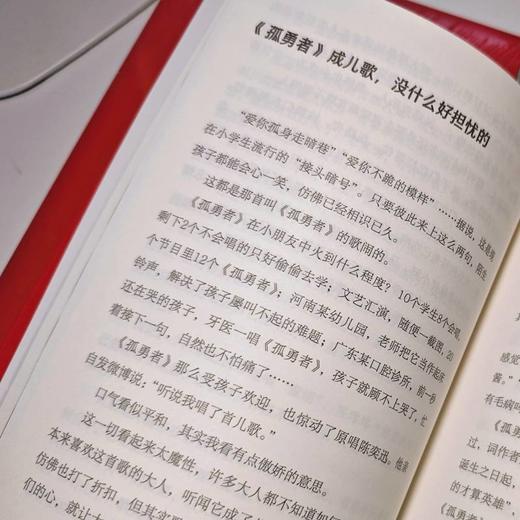 《孤勇者》成儿歌，没什么好担忧的
“爱你孤身走暗巷”“爱你不跪的模样”……据说，这是现
在小学生流行的“接头暗号”。只要彼此来上这么两句，陌生
孩子都能会心一笑，仿佛已经相识已久。
这都是那首叫《孤勇者》的歌闹的。
《孤勇者》在小朋友中火到什么程度？10个学生8个会唱，
剩下2个不会唱的只好偷偷去学；文艺汇演，随便一截图，20
个节目里12个《孤勇者》；河南某幼儿园，老师把它当作起床
铃声，解决了孩子屡叫不起的难题；广东某口腔诊所，前一秒
还在哭的孩子，牙医一唱《孤勇者》，孩子就顾不上哭了，忙
着接下一句，自然也不怕痛了……
《孤勇者》那么受孩子欢迎，也惊动了原唱陈奕迅。他亲
自发微博说：“听说我唱了首儿歌。”
口气看似平和，其实我看有点傲娇的意思。
这一切看起来太魔性，许多大人都不知如何
本来喜欢这首歌的大人，听闻它成了
仿佛也打了折扣，但其实
们的心，就让大
感觉
酱。”
有毛病吗
《孤勇
过，词作者
诞生之日起，
的才算英雄”，
《孤勇者》